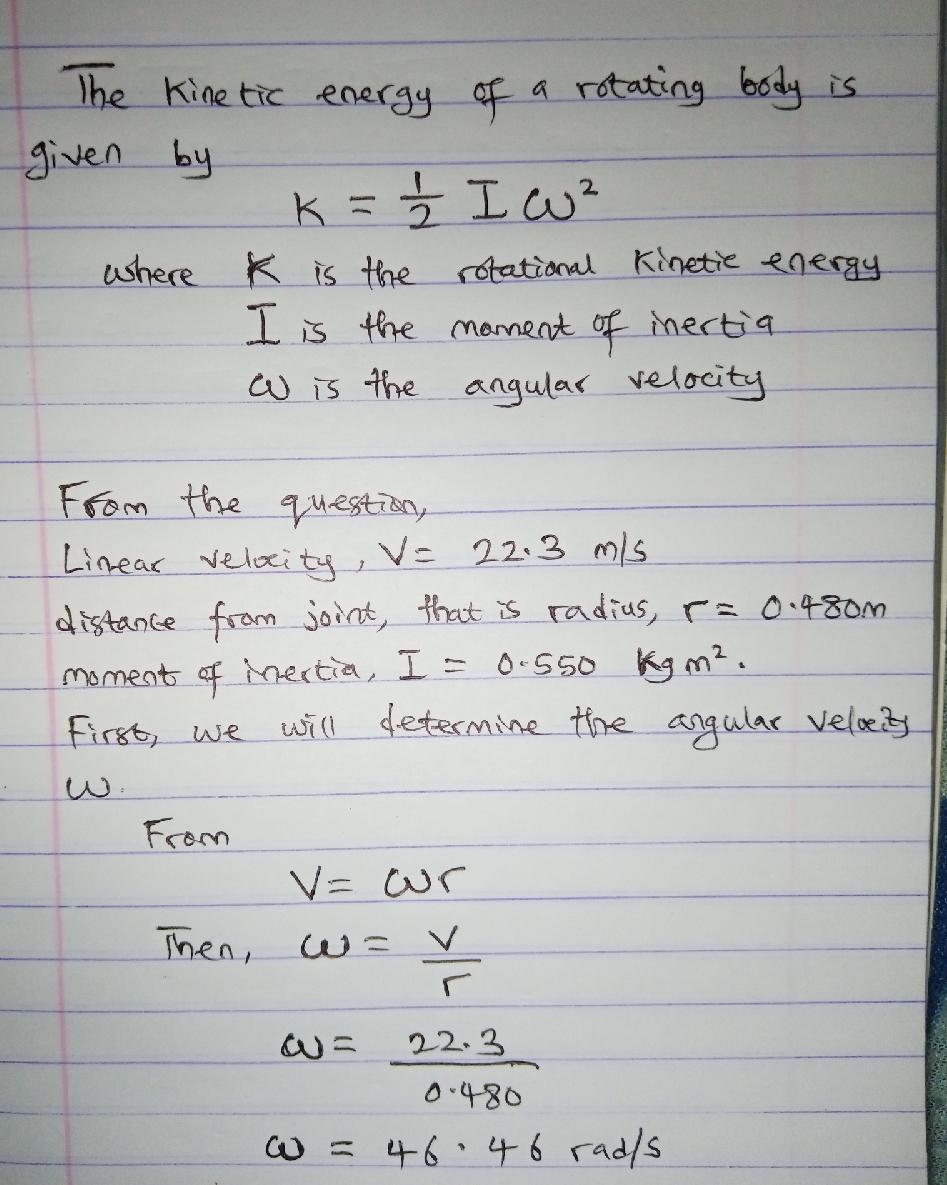 The Kinetic energy of a rotating body is
given by
K = 1/2 I ω²
where K is the rotational Kinetic energy
I is the moment of inertia
ω is the angular velocity
From the question,
Linear velocity, V = 22.3 m/s
distance from joint, that is radius, r = 0.480m
moment of inertia, I = 0.550 Kg m².
First, we will determine the angular velocity
ω.
From
V = ωr
Then, ω = V/r
ω = 22.3/0.480
ω = 46.46 rad/s